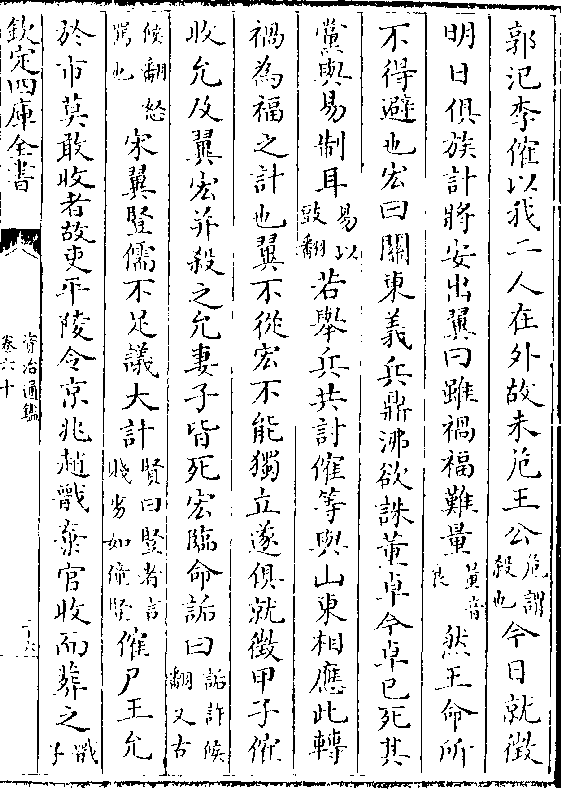 郭汜李傕以我二人在外故未危王公危謂殺也今日就徵
明日俱族計將安出翼曰雖禍福難量量音良然王命所
不得避也宏曰關東義兵鼎沸欲誅董卓今卓已死其
黨與易制耳易以豉翻若舉兵共討傕等與山東相應此轉
禍為福之計也翼不從宏不能獨立遂俱就徵甲子傕
收允及翼宏并殺之允妻子皆死宏臨命詬曰詬許候翻又古
候翻怒罵也宋翼豎儒不足議大計賢曰豎者言賤劣如僮豎傕尸王允
於市莫敢收者故吏平陵令京兆趙戩棄官收而葬之戩子
欽定四庫全書
資治通鑑
卷六十
十六